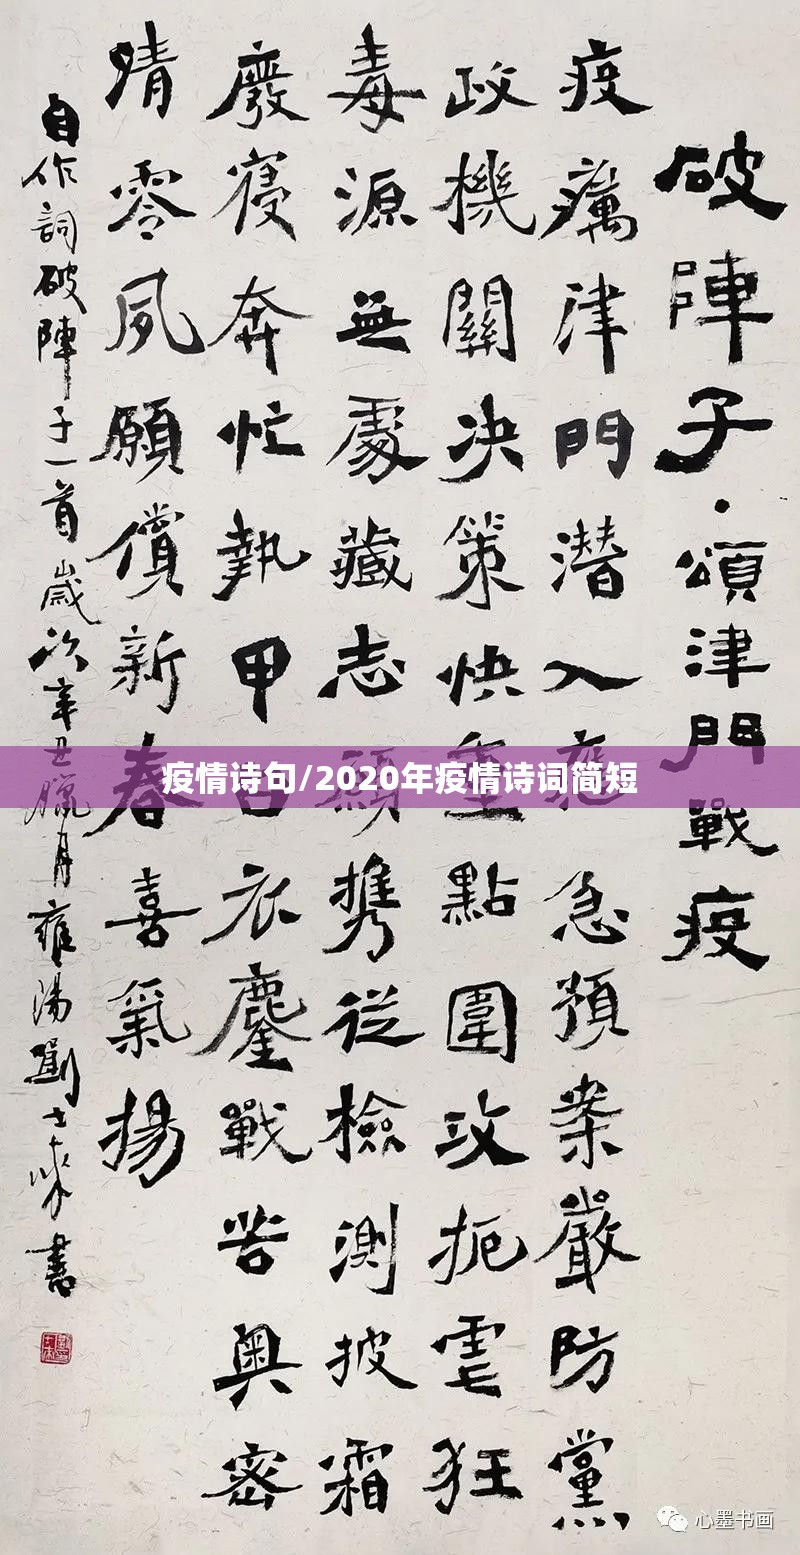 破陣子·頌津門戰疫
疫癘津門潜入急預案嚴防黨
政機關决策快重點圍攻扼狂
毒源無處藏志願携從檢測披霜
廢寝奔忙執甲白衣鏖戰苦奥密
清零夙願償新春喜氣揚
自作詞破陣子一首歲次辛丑臘月雍陽劉士書
疫情诗句/2020年疫情诗词简短
心墨书画